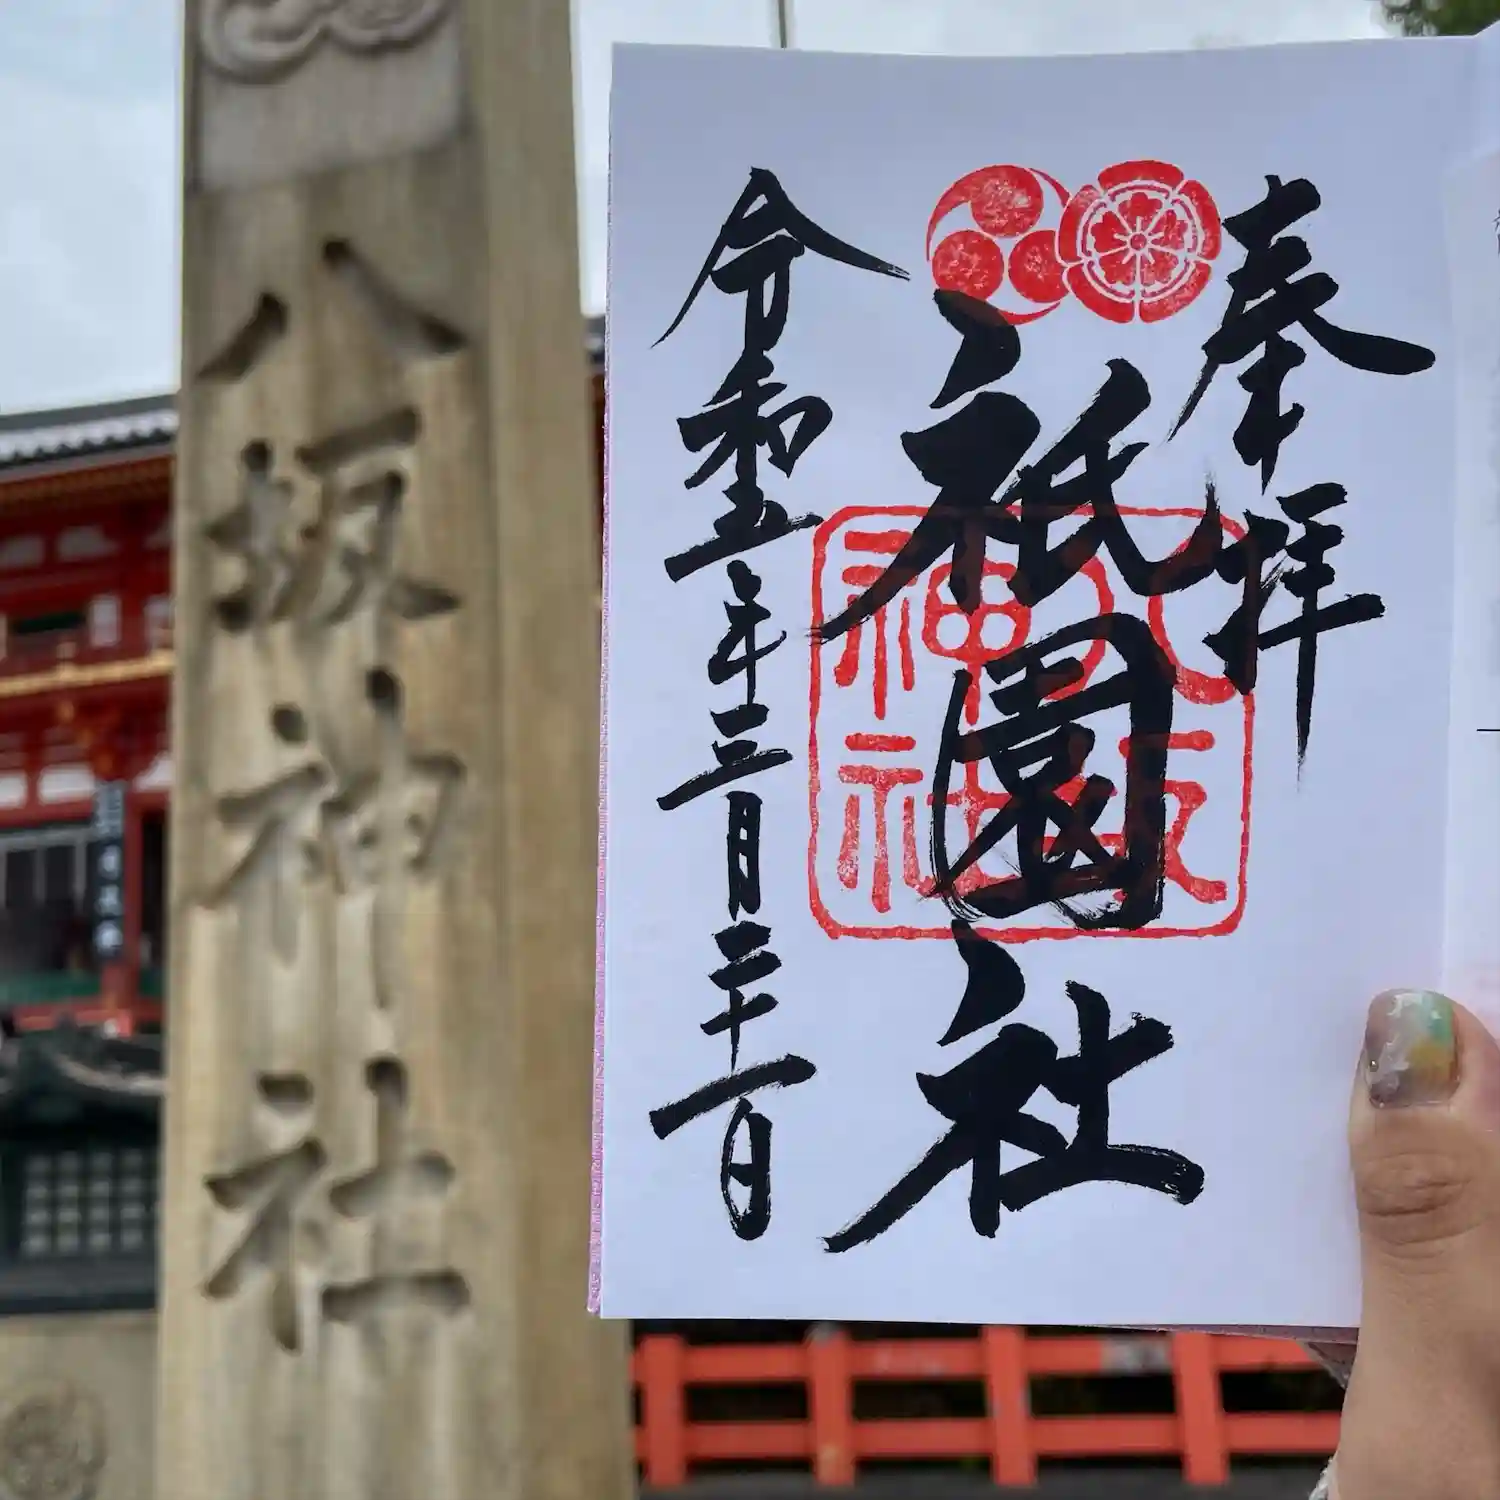 八坂神社
奉拝
祇園社
八坂神社
令和五年三月三十一日